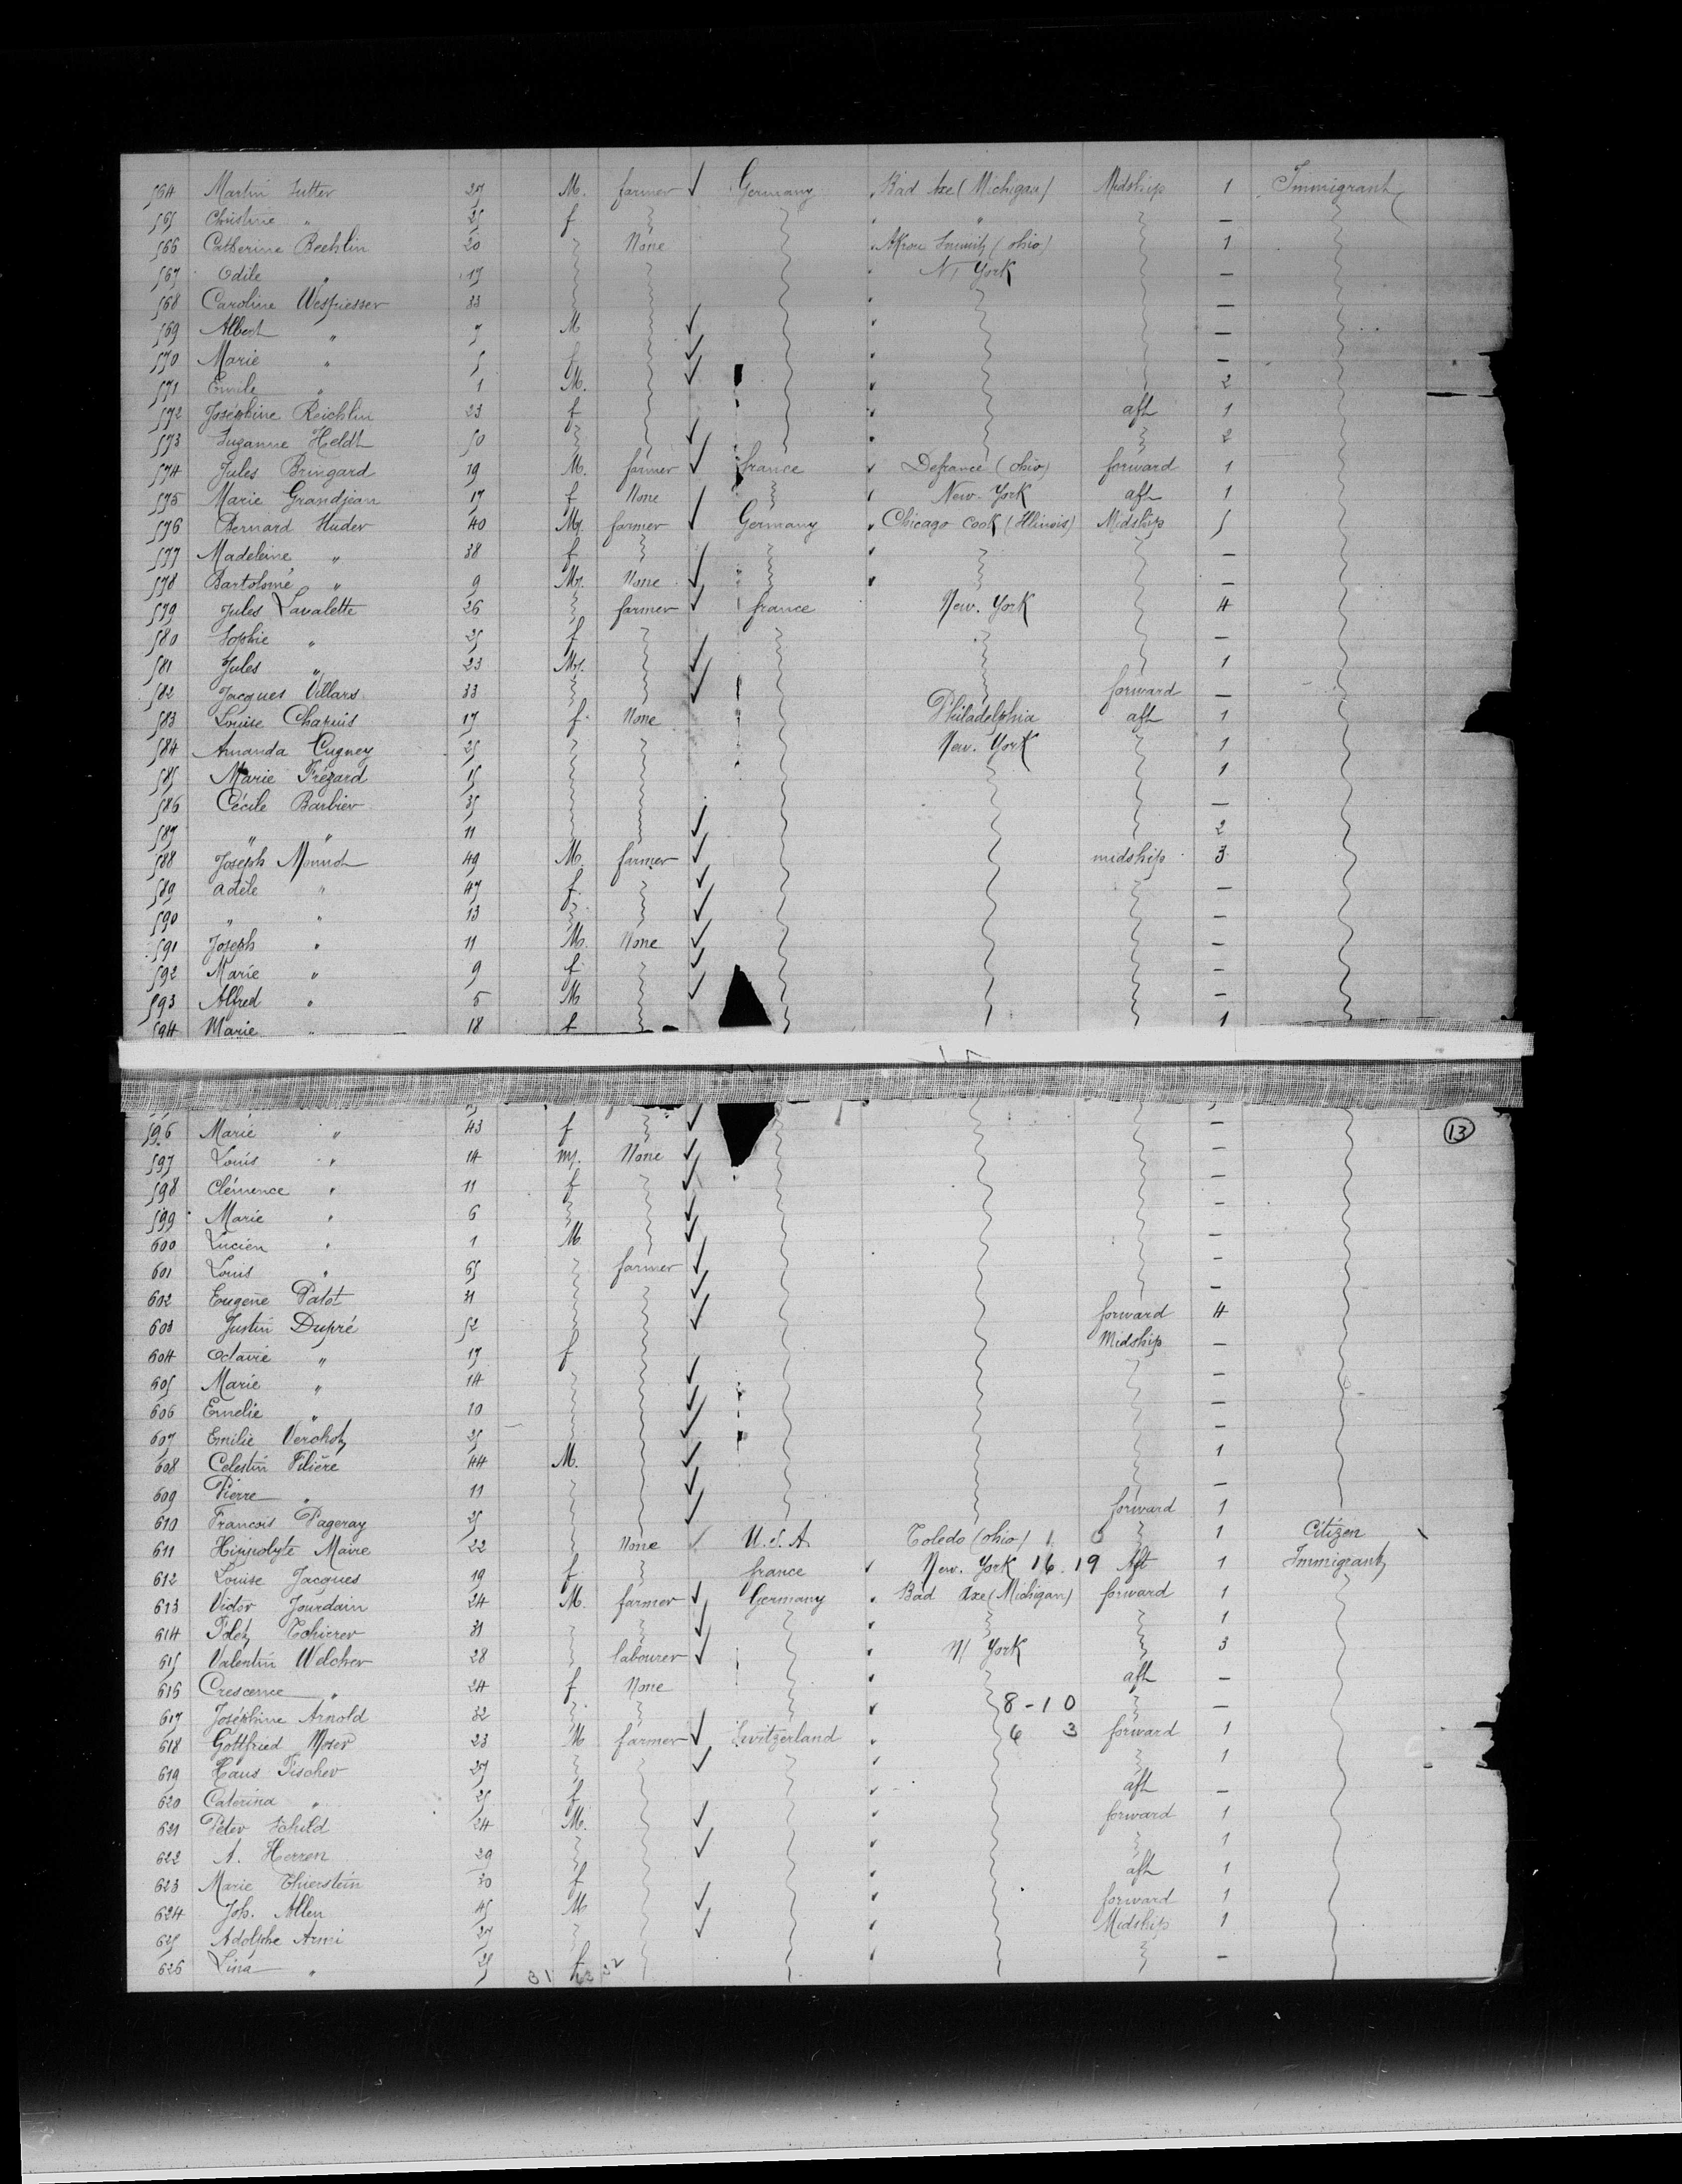 564 Martin Sutter 27 M. farmer ✓ Germany Bad Axe (Michigan) Midship 1 Immigrant
565 Christine " 25 f " —
566 Catherine Beehlin 20 None Akron (Ohio) 1
567 Odile " 17 N. York —
568 Caroline 33 —
569 Albert " 7 M ✓ —
570 Marie " 5 f ✓ —
571 Emile " 1 M. ✓ 2
572 Joséphine Reichlin 23 f aft 1
573 Suzanne Heldt 50 ✓ 2
574 Jules Bringard 19 M. farmer ✓ france Defrance (Ohio) forward 1
575 Marie Grandjean 17 f None ✓ New-York aft 1
576 Bernard Huder 40 M. farmer ✓ Germany Chicago Cook (Illinois) Midship 5
577 Madeleine " 38 f ✓ —
578 Bartolomé " 9 M. None ✓ —
579 Jules Lavalette 26 farmer ✓ france New. York 4
580 Sophie " 25 f —
581 Jules " 23 M. ✓ 1
582 Jacques Villars 33 ✓ forward —
583 Louise Chapuis 17 f. None Philadelphia aft 1
584 Amanda Cugney 25 New. York 1
585 Marie Frézard 15 1
586 Cécile Barbier 35 —
587 " " 11 ✓ 2
588 Joseph 49 M. farmer ✓ midship 3
589 Adèle " 47 f. ✓ —
590 " " 13 ✓ —
591 Joseph " 11 M. None ✓ —
592 Marie " 9 f ✓ —
593 Alfred " 5 M ✓ —
594 Marie " 18 f 1
596 Marie " 43 f ✓ —
13
597 Louis " 14 M. None ✓ —
598 Clémence " 11 f ✓ —
599 Marie " 6 ✓ —
600 Lucien " 1 M. ✓ —
601 Louis " 65 farmer ✓ —
602 Eugene Patot 31 ✓ —
603 Justin Dupré 52 ✓ forward 4
604 Octavie " 17 f Midship —
605 Marie " 14 ✓ —
606 Emelie " 10 ✓ —
607 Emilie 25 ✓ —
608 Celestin Filière 44 M. ✓ 1
609 Pierre " 11 ✓ —
610 Francois Pageray 25 ✓ forward 1
611 Hippolyte Maire 22 None ✓ U.S.A. Toledo (Ohio) 1 0 1 Citizen
612 Louise Jacques 19 f france New. York 16. 19 Aft 1 Immigrant
613 Victor Jourdain 24 M. farmer ✓ Germany Bad Axe (Michigan) forward 1
614 31 ✓ 1
615 Valentin Welcher 28 labourer ✓ N. York 3
616 Crescence " 24 f None aft —
617 Joséphine Arnold 32 8-10 —
618 Gottfried Moser 23 M farmer ✓ Switzerland 6 3 forward 1
619 Hans Fischer 27 ✓ 1
620 Caterina " 25 f aft —
621 Peter Schild 24 M. ✓ forward 1
622 A. Herren 29 ✓ 1
623 Marie Thierstein 30 f aft 1
624 Joh. Allen 45 M ✓ forward 1
625 Adolphe Armi 27 ✓ Midship 1
626 Lina " 25 f —
31 32